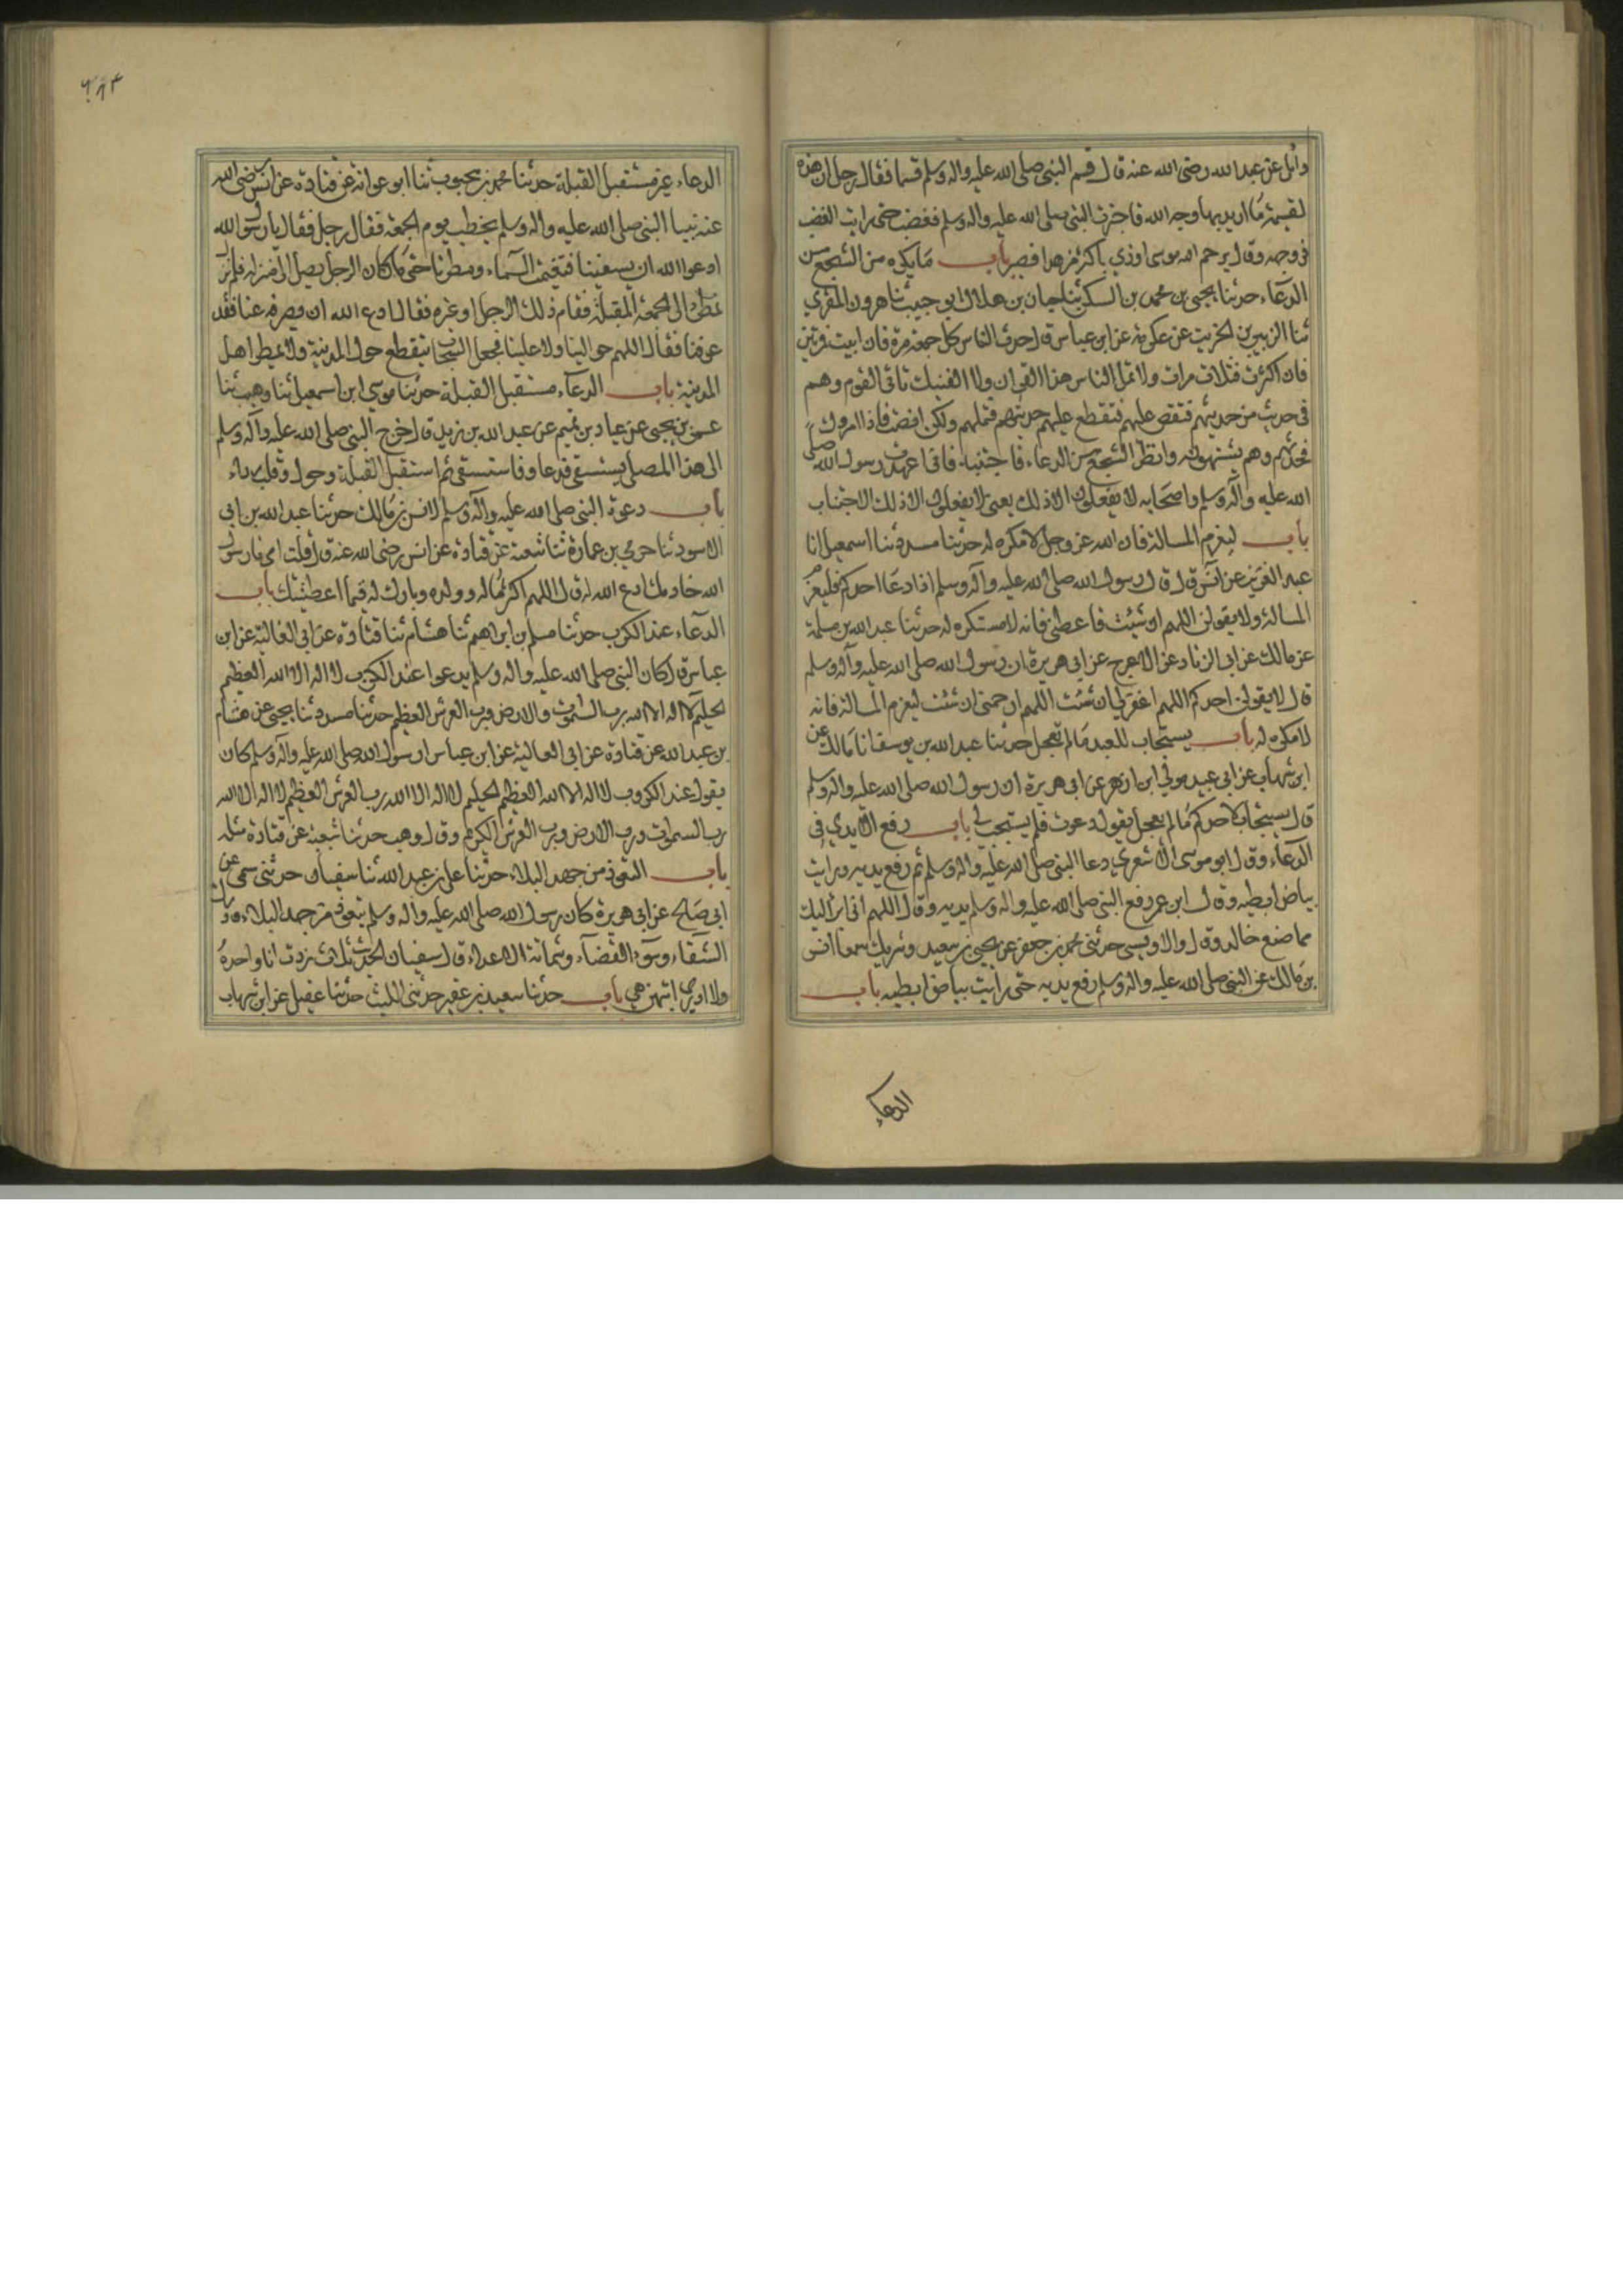 وائل عن عبد الله رضى الله عنه قال قسم النبى صلى الله عليه واله وسلم قسما فقال رجل ان هذه
لقسمة ما اريد بها وجه الله فاخبرت النبى صلى الله عليه واله وسلم فغضب حتى رايت الغضب
فى وجهه وقال يرحم الله موسى اوذي باكثر من هذا فصبر باب ما يكره من السجع من
الدعاء حدثنا يحيى بن محمد بن السكن ثنا حبان بن هلال ابو حبيب ثنا هرون المقري
ثنا الزبير بن الخريت عن عكرمة عن ابن عباس قال حدث الناس كل جمعة مرة فان ابيت فمرتين
فان اكثرت فثلاث مرات ولا تمل الناس هذا القران ولا الفينك تاتى القوم وهم
فى حديث من حديثهم فتقص عليهم فتقطع عليهم حديثهم فتملهم ولكن انصت فاذا امروك
فحدثهم وهم يشتهونه وانظر السجع من الدعاء فاجتنبه فانى عهدت رسول الله صلى
الله عليه واله وسلم واصحابه لا يفعلون الا ذلك يعنى لا يفعلون الا ذلك الاجتناب
باب ليعزم المسالة فان الله عز وجل لا مكره له حدثنا مسدد ثنا اسمعيل انا
عبد العزيز عن انس قال قال رسول الله صلى الله عليه واله وسلم اذا دعا احدكم فليعزم
المسالة ولا يقولن اللهم ان شئت فاعطنى فانه لا مستكره له حدثنا عبد الله بن مسلمة
عن مالك عن ابى الزناد عن الاعرج عن ابى هريرة ان رسول الله صلى الله عليه واله وسلم
قال لا يقولن احدكم اللهم اغفر لي ان شئت اللهم ارحمنى ان شئت ليعزم المسالة فانه
لا مكره له باب يستجاب للعبد ما لم يعجل حدثنا عبد الله بن يوسف انا مالك عن
ابن شهاب عن ابى عبيد مولى ابن ازهر عن ابى هريرة ان رسول الله صلى الله عليه واله وسلم
قال يستجاب لاحدكم ما لم يعجل يقول دعوت فلم يستجب لي باب رفع الايدي فى
الدعاء وقال ابو موسى الاشعري دعا النبى صلى الله عليه واله وسلم ثم رفع يديه ورايت
بياض ابطيه وقال ابن عمر رفع النبى صلى الله عليه واله وسلم يديه وقال اللهم انى ابرا اليك
مما صنع خالد وقال الاويسى حدثنى محمد بن جعفر عن يحيى بن سعيد وشريك سمعا انس
بن مالك عن النبى صلى الله عليه واله وسلم رفع يديه حتى رايت بياض ابطيه باب
الدعاء
الدعاء غير مستقبل القبلة حدثنا محمد بن محبوب ثنا ابو عوانة عن قتادة عن انس رضى الله
عنه بينا النبى صلى الله عليه واله وسلم يخطب يوم الجمعة فقال رجل فقال يا رسول الله
ادعوا الله ان يسقينا فتغيمت السماء ومطرنا حتى ما كان الرجل يصل الى منزله فلم تزل
تمطر الى الجمعة المقبلة فقام ذلك الرجل او غيره فقال ادع الله ان يصرفه عنا فقد
غرقنا فقال اللهم حوالينا ولا علينا فجعل السحاب يتقطع حول المدينة ولا يمطر اهل
المدينة باب الدعاء مستقبل القبلة حدثنا موسى ابن اسمعيل ثنا وهيب ثنا
عمرو بن يحيى عن عباد بن تميم عن عبد الله بن زيد قال خرج النبى صلى الله عليه واله وسلم
الى هذا المصلى يستسقى فدعا وفاستسقى ثم استقبل القبلة وحول وقلب رداء
باب دعوة النبى صلى الله عليه واله وسلم لانس بن مالك حدثنا عبد الله بن ابى
الاسود ثنا حرمي بن عمارة ثنا شعبة عن قتادة عن انس رضى الله عنه قال قلت امى يا رسول
الله خادمك ادع الله له قال اللهم اكثر ماله وولده وبارك له فيما اعطيته باب
الدعاء عند الكرب حدثنا مسلم بن ابراهيم ثنا هشام ثنا قتادة عن ابى العالية عن ابن
عباس قال كان النبى صلى الله عليه واله وسلم يدعوا عند الكرب لا اله الا الله العظيم
الحليم لا اله الا الله رب السموات والارض ورب العرش العظيم حدثنا مسدد ثنا يحيى عن هشام
بن عبد الله عن قتادة عن ابى العالية عن ابن عباس ان رسول الله صلى الله عليه واله وسلم كان
يقول عند الكرب لا اله الا الله العظيم الحليم لا اله الا الله رب العرش العظيم لا اله الا الله
رب السموات ورب الارض ورب العرش الكريم وقال وهب حدثنا شعبة عن قتادة مثله
باب التعوذ من جهد البلاء حدثنا على بن عبد الله ثنا سفيان حدثنى سمى عن
ابى صالح عن ابى هريرة كان رسول الله صلى الله عليه واله وسلم يتعوذ من جهد البلاء ودرك
الشقاء وسوء القضاء وشماتة الاعداء قال سفيان الحديث ثلاث زدت انا واحدة
ولا ادرى ايتهن هي باب حدثنا سعيد بن عفير حدثنى الليث حدثنا عقيل عن ابن شهاب